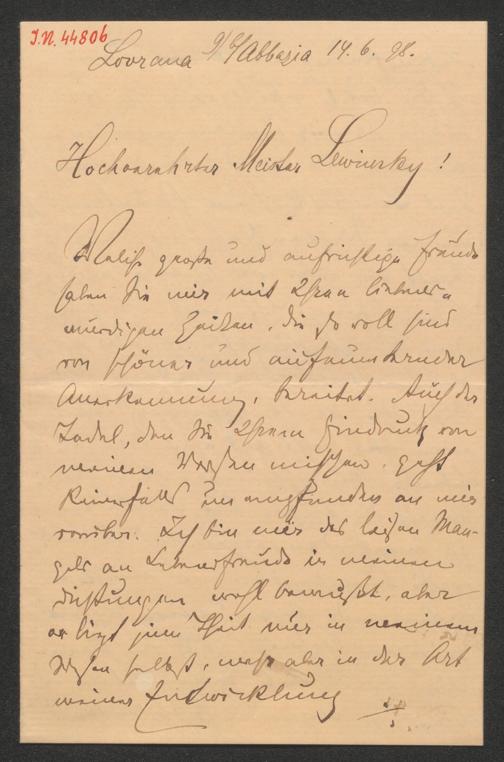 J.N. 44806
Lovrana b/Abbazia 14. 6. 98.
Hochverehrter Meister Lewinsky!
Welch große und aufrichtige Freude
haben Sie mir mit Ihren liebens-
würdigen Zeilen, die so voll sind
von schöner und aufmunternder
Anerkennung, bereitet. Auch der
Tadel, den Sie Ihrem Eindruck von
meinen Versen mischen, geht
keinesfalls unempfunden an mir
vorüber. Ich bin mir des leisen Man-
gels an Lebensfreude in meinen
Dichtungen wohl bewußt, aber
er liegt zum Theil nur in meinem
Wesen selbst, mehr aber in der Art
meiner Entwicklung